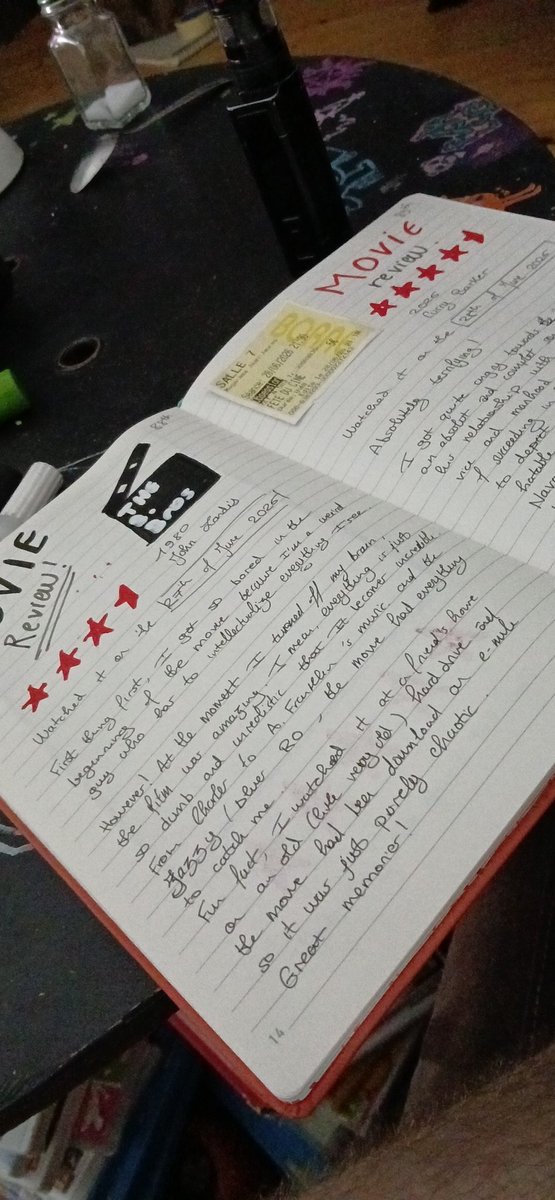 88th
MOVIE
REVIEW!
THE
B. BROS
1980
John Landis
Watched it on the 27th of June 2026
First thing first, I got so bored in the
beginning of the movie because I'm a weird
guy who has to intellectualize everything I see...
However! At the moment I turned off my brain,
the film was amazing, I mean, everything is just
so dumb and unrealistic that it becomes incredible
From Charles to A. Franklin's music and the
Jazzy / Blues BO, the movie had everything
to catch me
Fun fact, I watched it at a friend's home
on an old (like very old) hard drive and
the movie had been download on e-mule
so it was just purely chaotic
Great memories!
14
MOVIE
review
SALLE 7
FETE DU CINE
2026
Curry Barker
Watched it on the 28th of June 2026
Absolutely terrifying!
I got quite angry towards the
an absolut and
his relationship with
vice and manhood
of succeeding in
to
hatable